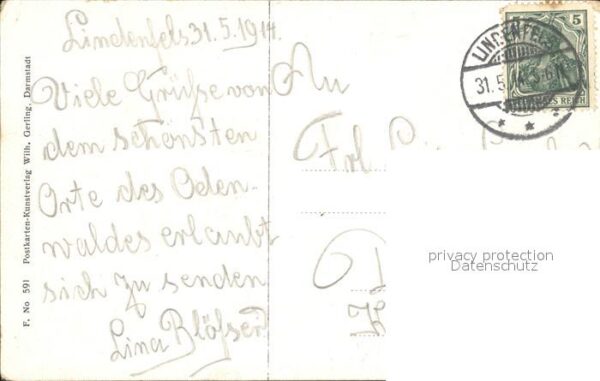 Lindenfels 31.5.1914.
Viele Grüße von
dem schönsten
Orte des Oden-
waldes erlaubt
sich zu senden
Lina
An
Frl
LINDENFELS
31.5.14. 5-6 N
5
DEUTSCHES REICH
privacy protection
Datenschutz
F. No 591 Postkarten-Kunstverlag Wilh. Gerling, Darmstadt